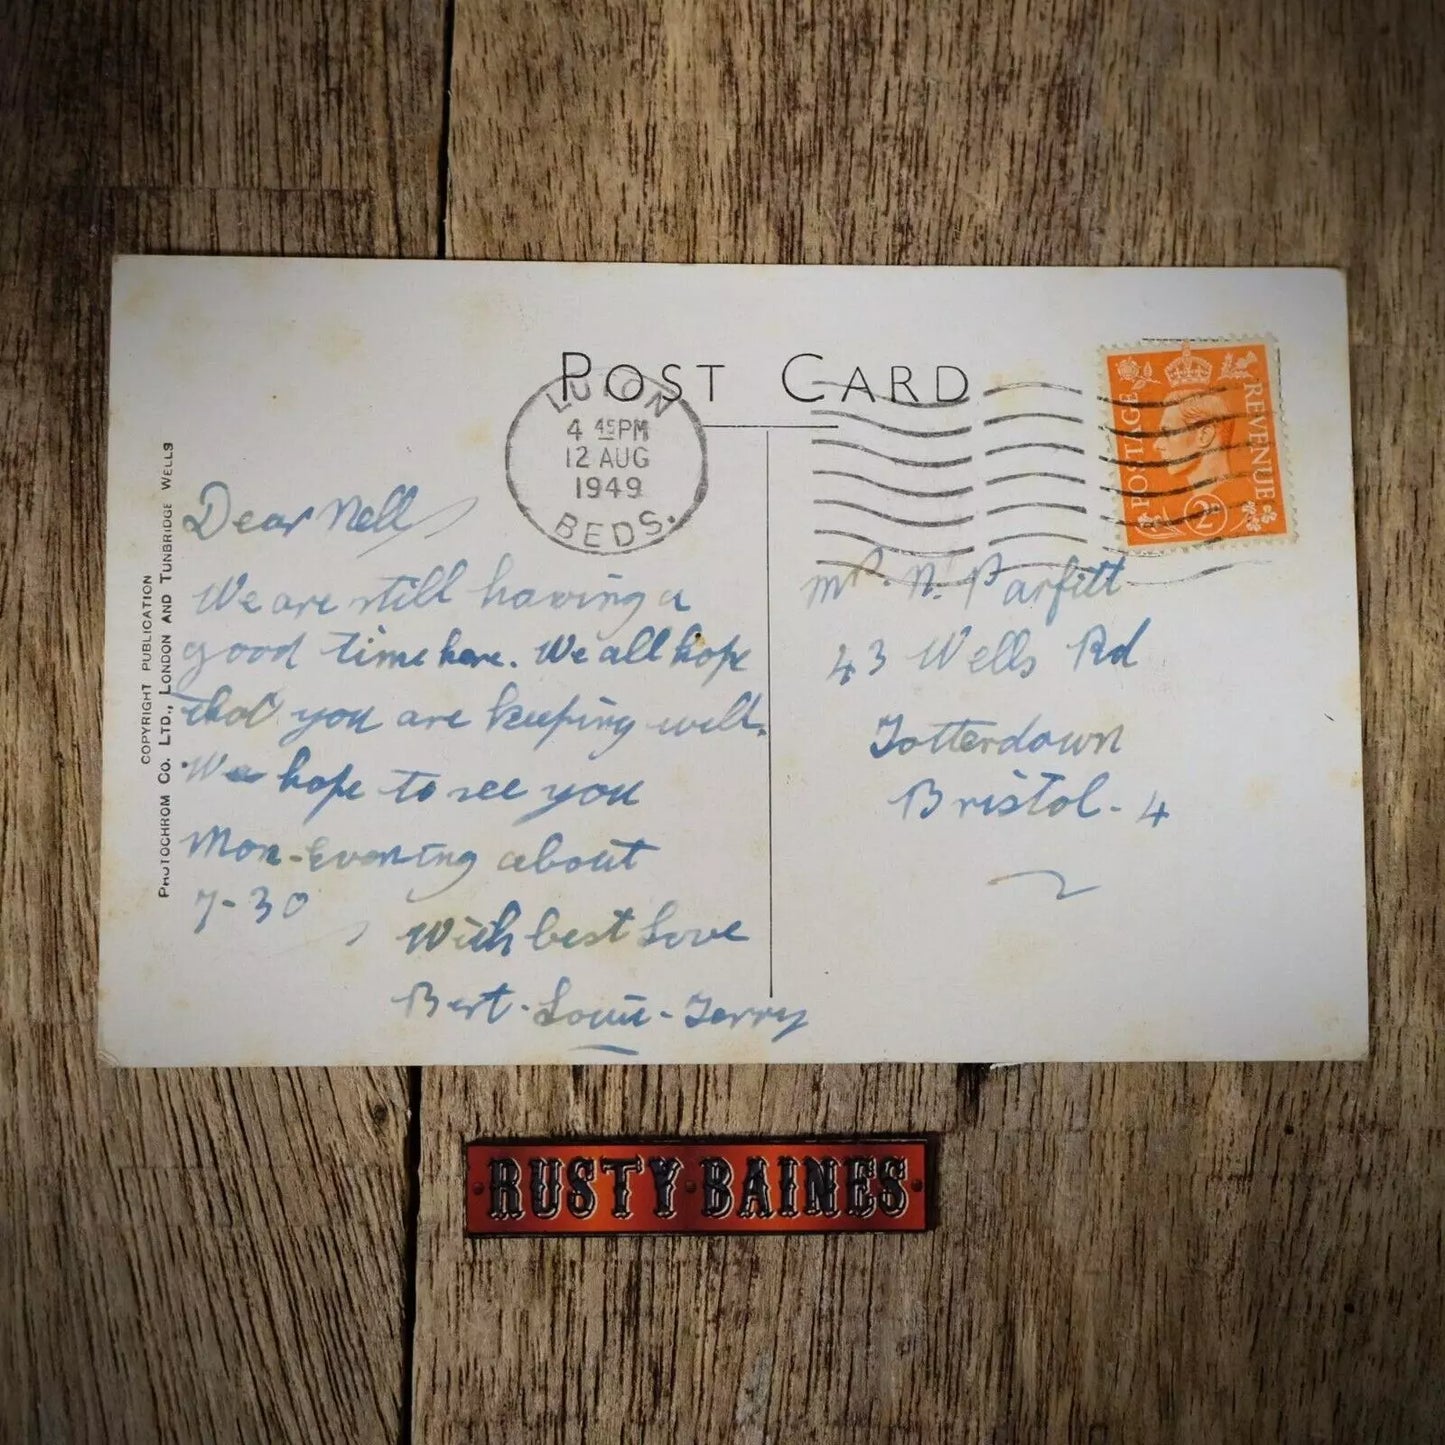 POST CARD
LUTON
4 45PM
12 AUG
1949
BEDS.
POSTAGE
REVENUE
2D
COPYRIGHT PUBLICATION
PHOTOCHROM CO. LTD., LONDON AND TUNBRIDGE WELLS
Dear Nell
We are still having a
good time here. We all hope
that you are keeping well.
We hope to see you
Mon-Evening about
7-30
With best Love
Bert-Louie-Terry
N. Parfitt
43 Wells Rd
Totterdown
Bristol-4
RUSTY BAINES